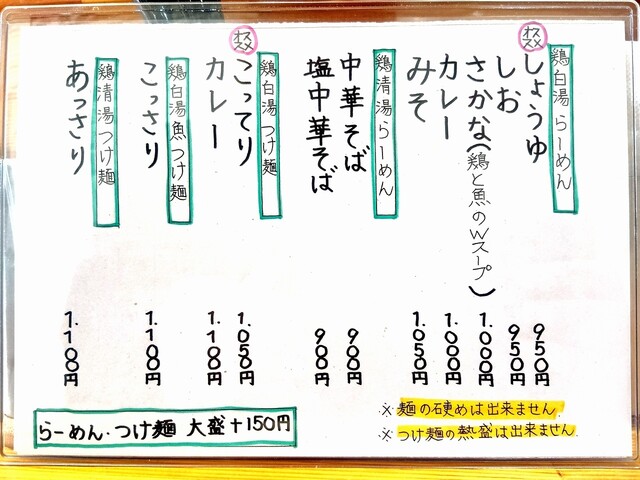 鶏白湯 らーめん
オススメ
しょうゆ 950円
しお 950円
さかな(鶏と魚のWスープ) 1.000円
カレー 1.000円
みそ 1.050円
鶏清湯 らーめん
中華そば 900円
塩中華そば 900円
鶏白湯 つけ麺
オススメ
こってり 1.050円
カレー 1.100円
鶏白湯魚つけ麺
こっさり 1.100円
鶏清湯つけ麺
あっさり 1.100円
らーめん・つけ麺 大盛+150円
※麺の硬めは出来ません。
※つけ麺の熱盛は出来ません。